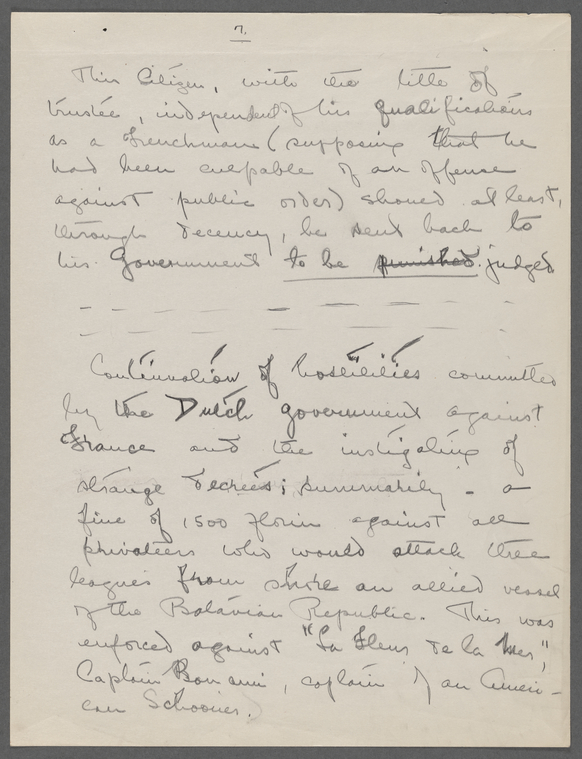 7.
This Citizen, with the title of
trustee, independent of his qualifications
as a Frenchman (supposing that he
had been culpable of an offense
against public order) should at least,
through decency, be sent back to
his Government to be punished judged
Continuation of hostilities committed
by the Dutch government against
France and the instigating of
strange decrees; summarily - a
fine of 1500 florin against all
privateers who would attack three
leagues from shore an allied vessel
of the Batavian Republic. This was
enforced against "La Fleur de la Mer,"
Captain Bonami, captain of an Ameri-
can Schooner.